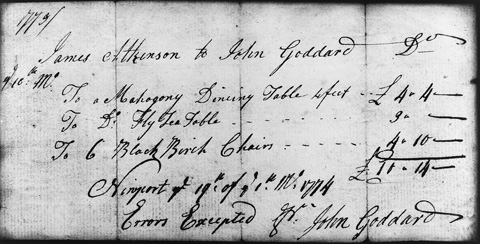 1773/
James Atkinson to John Goddard Dr
ye 10th Mo
To a Mahogony Dineing Table 4 feet -- £ 4 „ 4 —
To Do Fly Tea Table - - - - - - 3 „ —
To 6 Black Birch Chairs - - - - - 4 „ 10 —
£ 11 „ 14 —
Newport ye 19th of ye 1st Mo 1774
Errors Excepted Pr John Goddard